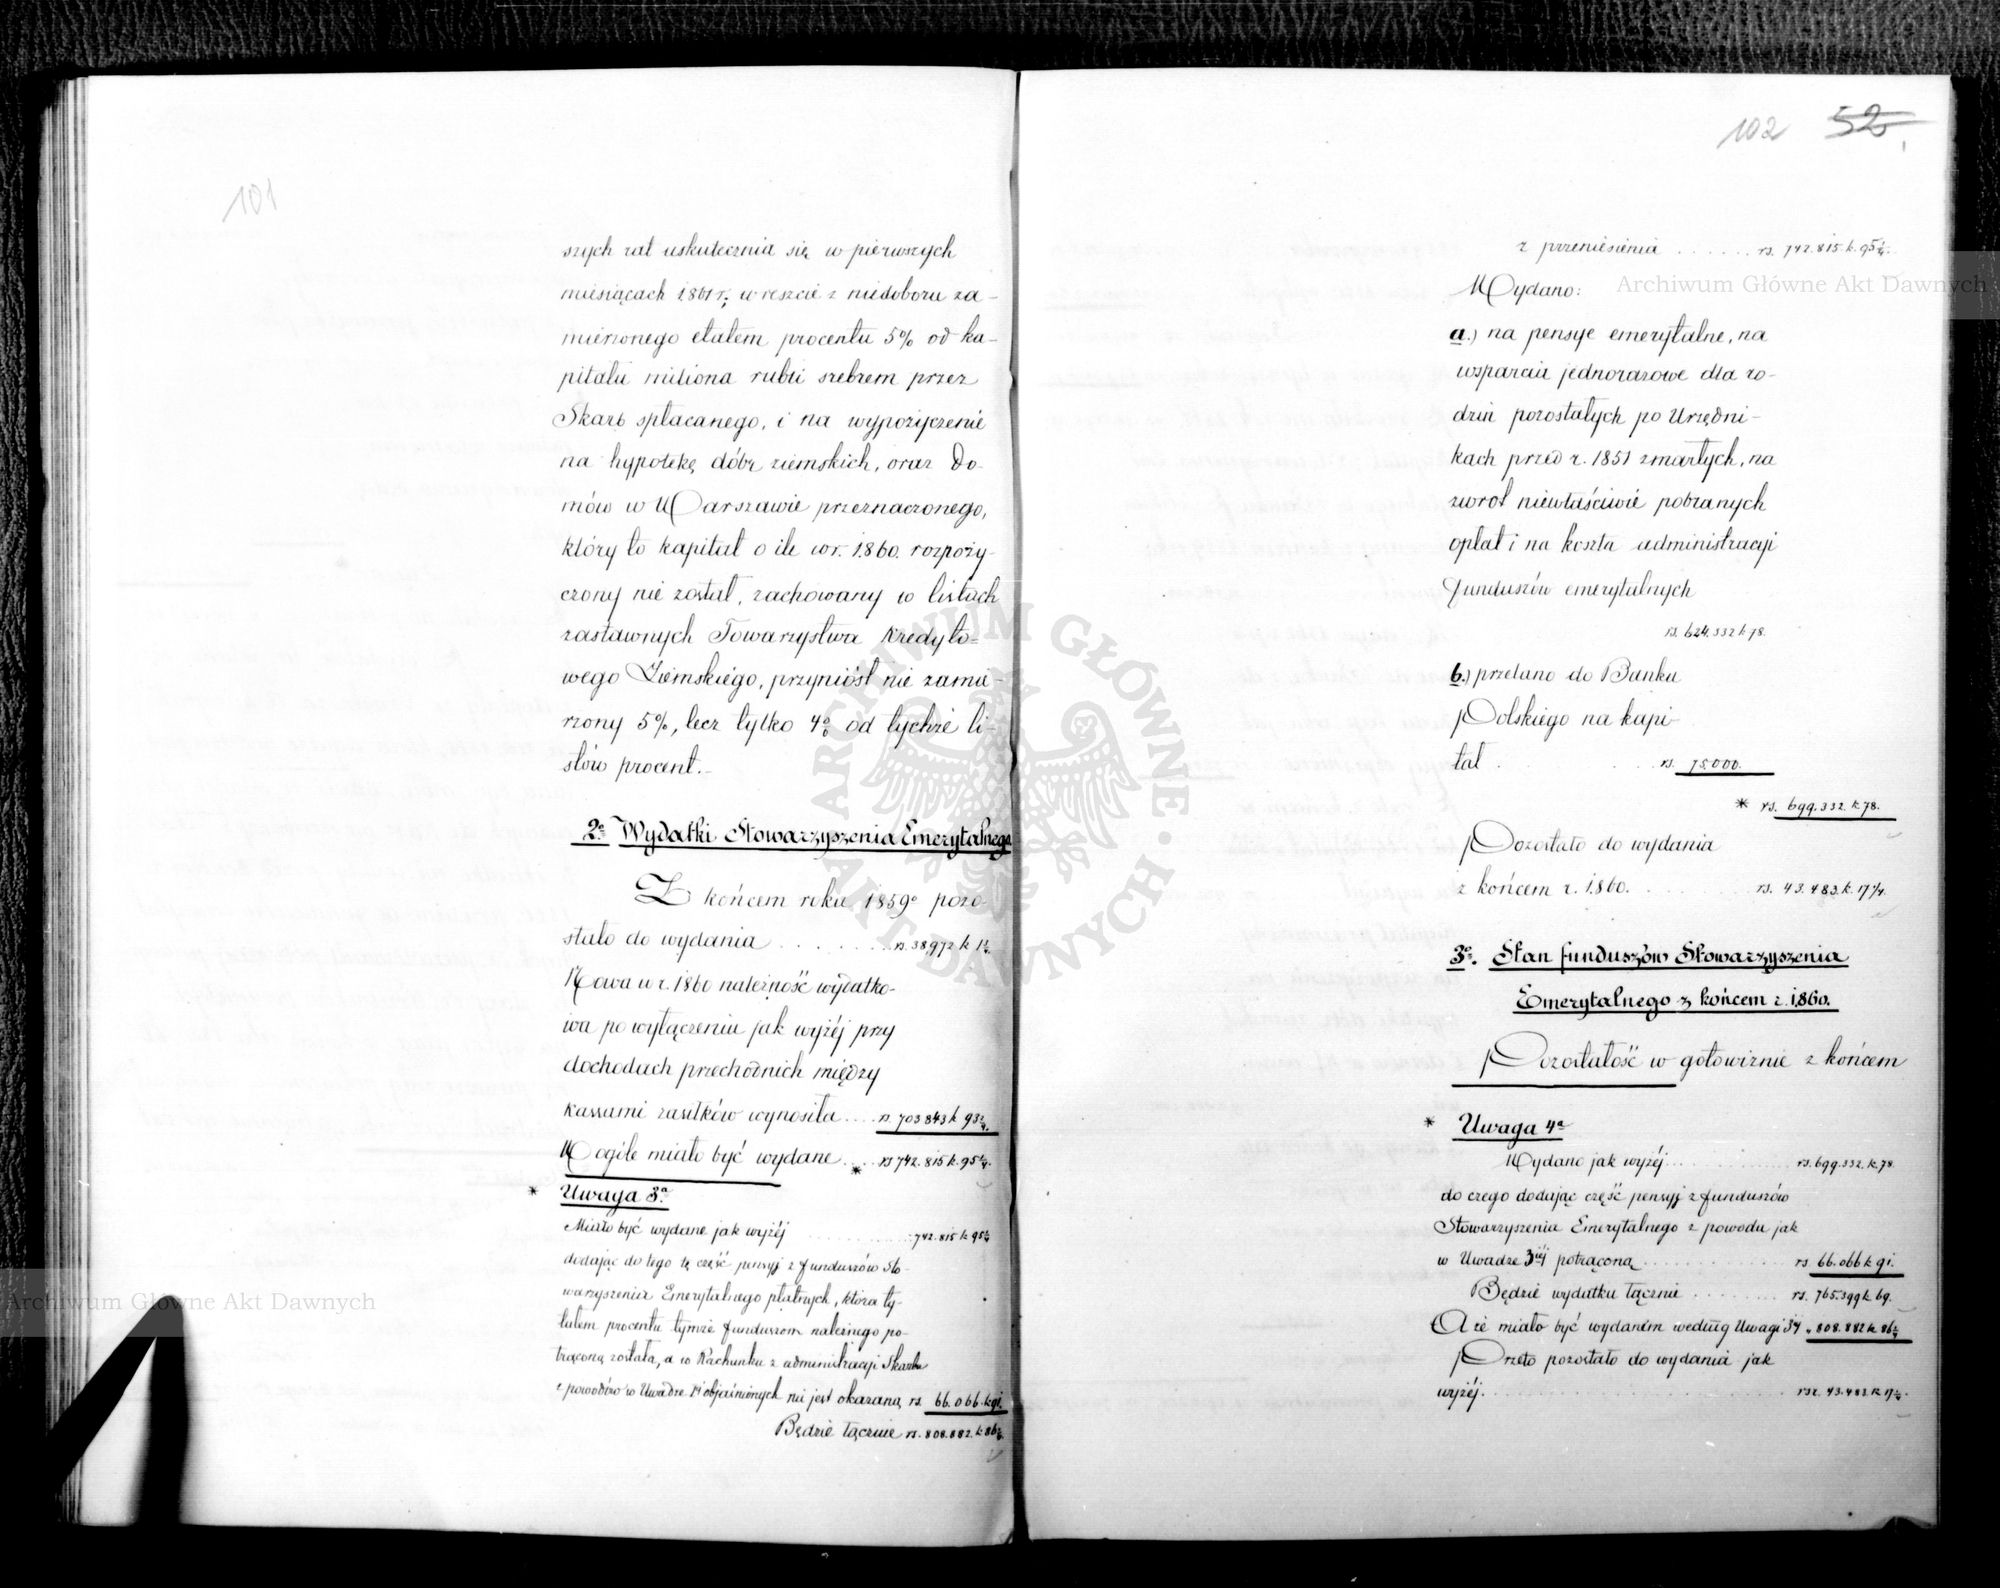 101
szych rat uskutecznia się w pierwszych
miesiącach 1861 r; w reszcie z niedoboru za-
mierzonego etatem procentu 5% od ka-
pitału miliona rubli srebrem przez
Skarb spłacanego, i na wypożyczenie
na hypotekę dóbr ziemskich, oraz Do-
mów w Warszawie przeznaczonego,
który to kapitał o ile w r. 1860. rozpoży-
czony nie został, zachowany w listach
zastawnych Towarzystwa Kredyto-
wego Ziemskiego, przyniósł nie zamie-
rzony 5%, lecz tylko 4% od tychże li-
stów procent.-
2e Wydatki Stowarzyszenia Emerytalnego
Z końcem roku 1859o pozo-
stało do wydania . . . . . . . rs. 38,972 k 1 1/4.
Nowa w r. 1860 należność wydatko-
wa po wyłączeniu jak wyżéj przy
dochodach przechodnich między
kassami zasiłków wynosiła .... rs 703 843 k 93 3/4.
W ogóle miało być wydane .... * rs 742.815 k. 95 1/4.
* Uwaga 3a
Miało być wydane jak wyżéj . . . . . . . 742.815 k 95 1/4
dodając do tego tę część pensyj z funduszów Sto-
warzyszenia Emerytalnego płatnych, która ty-
tułem procentu tymże funduszom należnego po-
trąconą została, a w Rachunku z administracyi Skarbu
z powodów w Uwadze 1éj objaśnionych nie jest okazaną rs. 66.066. k 91.
Będzie łącznie rs. 808.882. k 86 1/4.
102 52
z przeniesienia . . . . . . rs. 742.815 k. 95 1/4.
Wydano:
a.) na pensye emerytalne, na
wsparcia jednorazowe dla ro-
dzin pozostałych po Urzędni-
kach przed r. 1851 zmarłych, na
zwrot niewłaściwie pobranych
opłat i na koszta administracyi
funduszów emerytalnych
rs. 624.332 k 78.
b.) przelano do Banku
Polskiego na kapi-
tał . . . . . . rs. 75000.
* rs. 699.332. k 78.
Pozostało do wydania
z końcem r. 1860. . . . . . . rs. 43.483. k. 17 1/4.
3e. Stan funduszów Stowarzyszenia
Emerytalnego z końcem r. 1860.
Pozostałość w gotowiznie z końcem
* Uwaga 4a
Wydano jak wyżéj . . . . . . . rs. 699.332. k. 78.
do czego dodając część pensyj z funduszów
Stowarzyszenia Emerytalnego z powodu jak
w Uwadze 3iéj potrąconą . . . . . . . rs 66.066 k 91.
Będzie wydatku łącznie . . . . . . . rs. 765.399 k 69.
A że miało być wydaném według Uwagi 3éj „ 808.882 k 86 1/4
Przeto pozostało do wydania jak
wyżéj . . . . . . . rsr. 43.483 k 17 1/4.
Archiwum Główne Akt Dawnych
Archiwum Główne Akt Dawnych
ARCHIWUM GŁÓWNE · AKT DAWNYCH ·